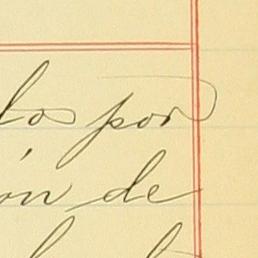 los por
ón de